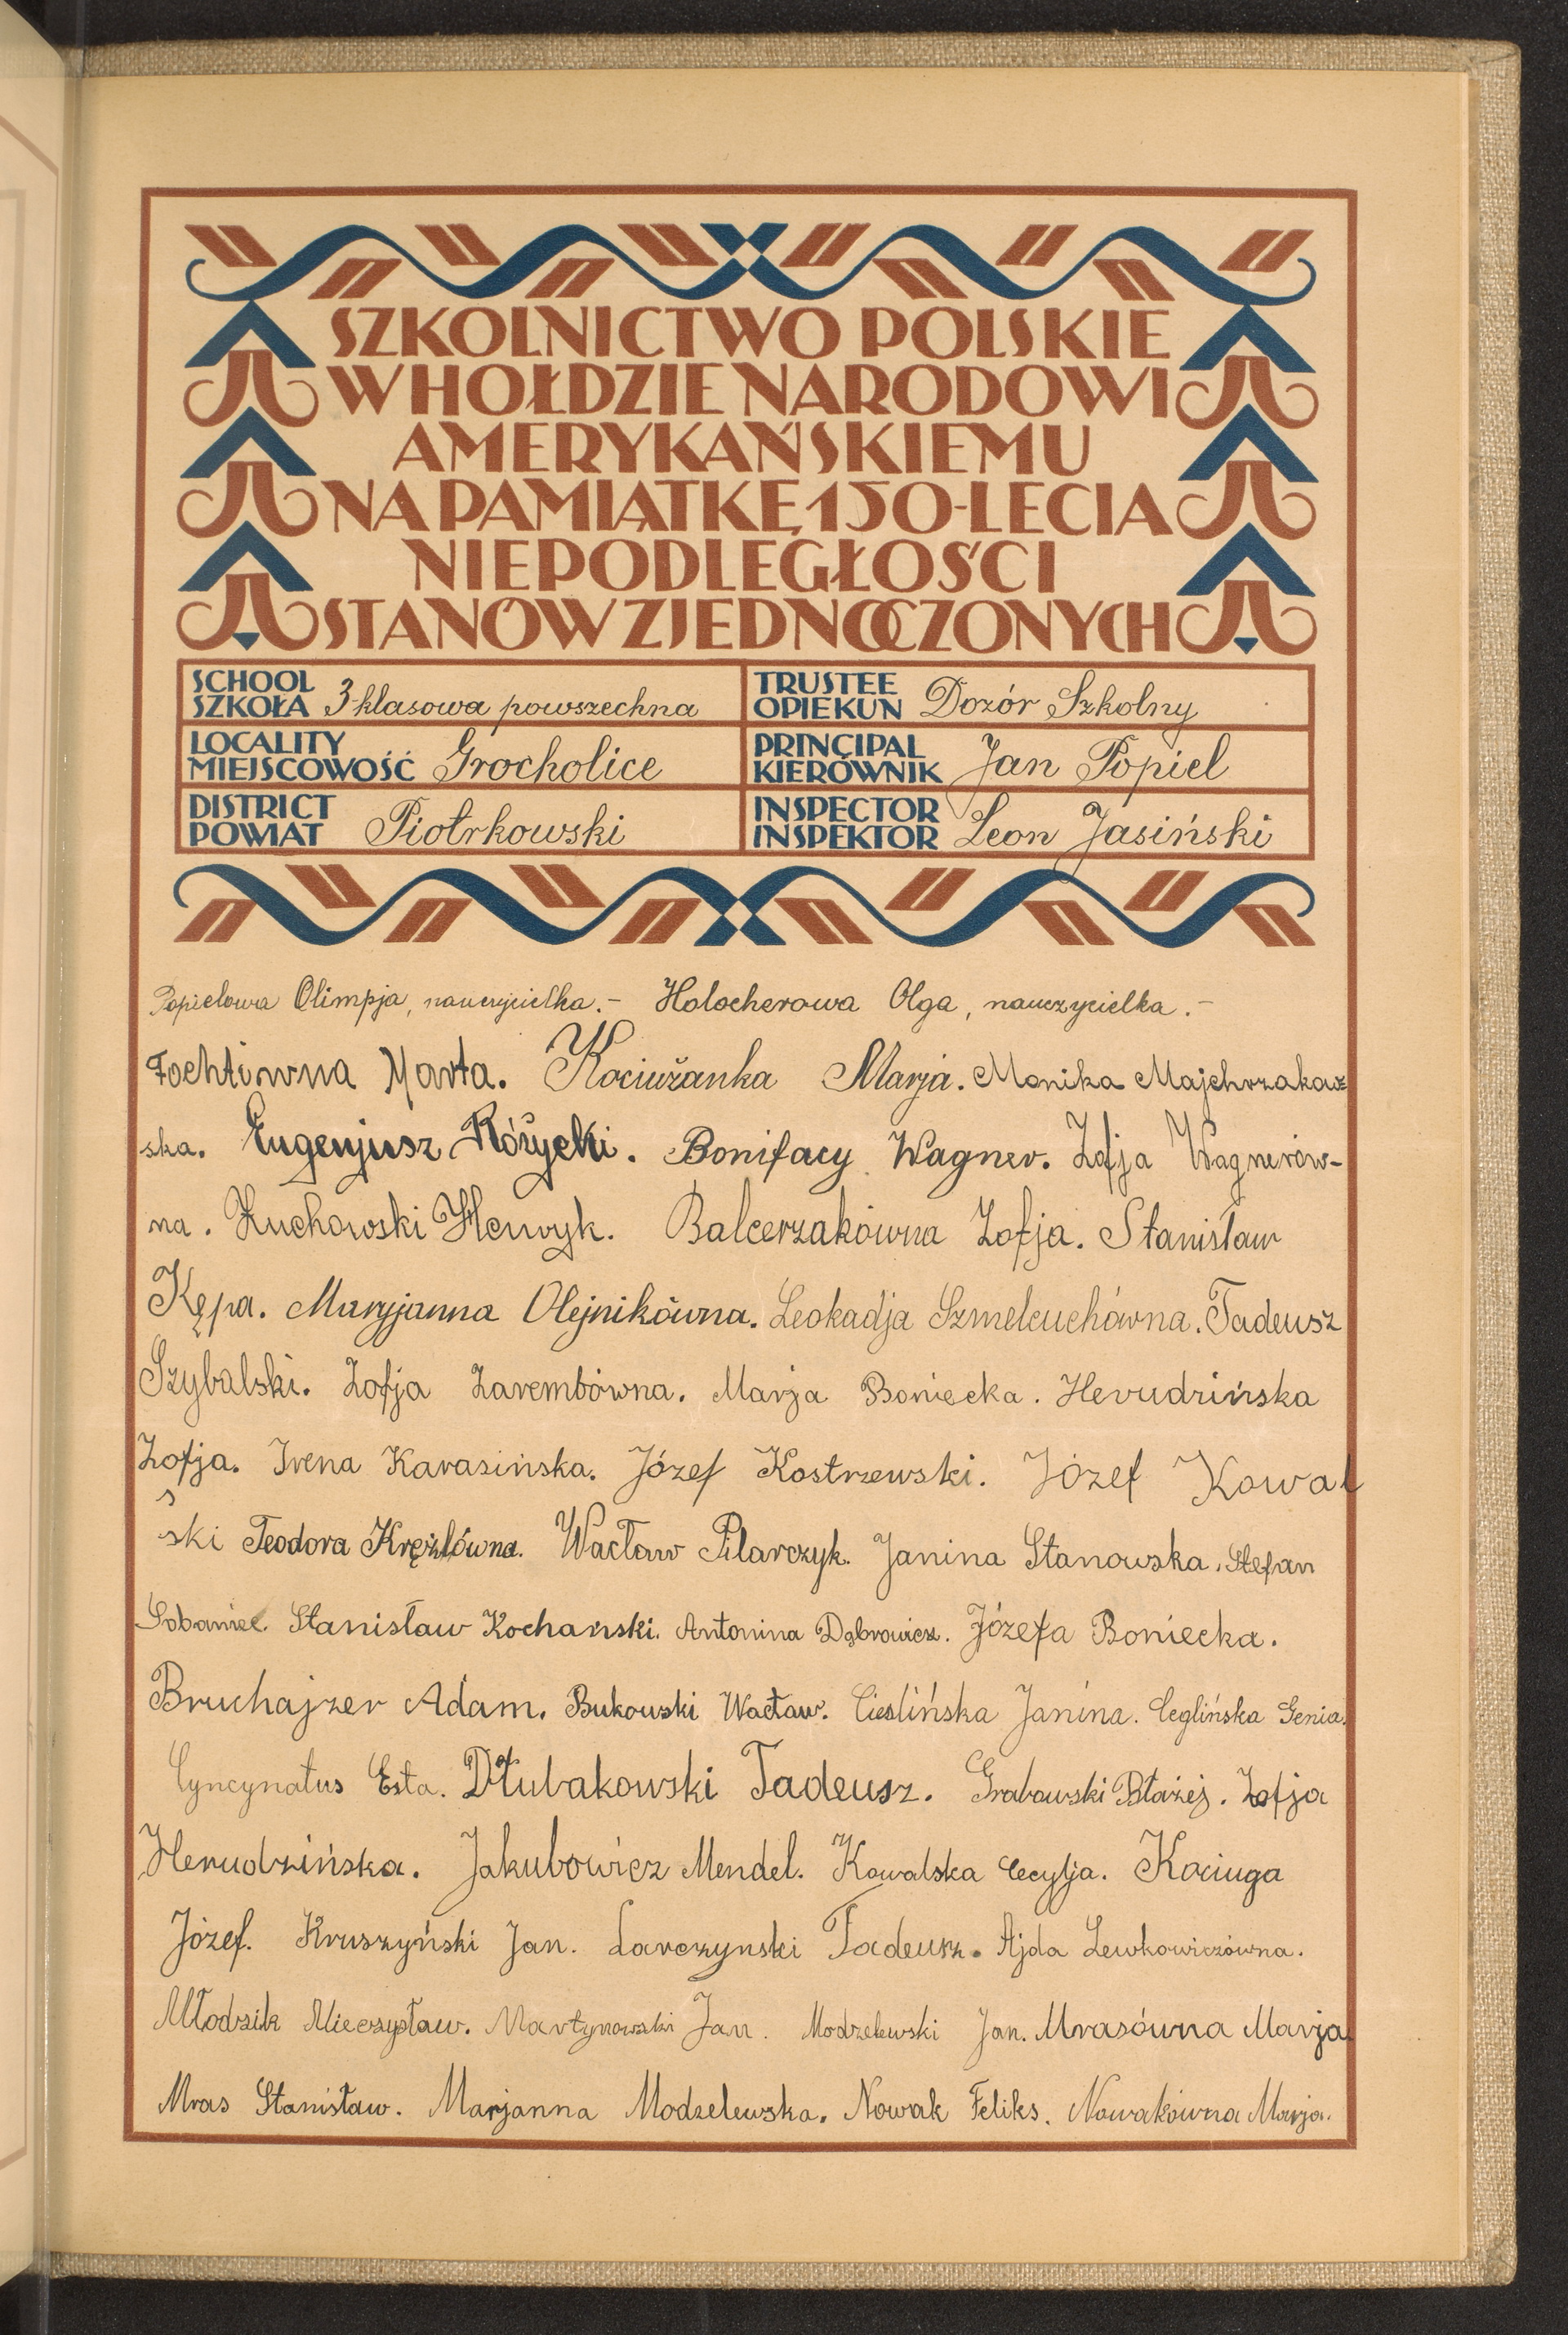 SZKOLNICTWO POLSKIE
W HOŁDZIE NARODOWI
AMERYKAŃSKIEMU
NA PAMIĄTKĘ 150-LECIA
NIEPODLEGŁOŚCI
STANÓW ZJEDNOCZONYCH
SCHOOL
SZKOŁA 3-klasowa powszechna
TRUSTEE
OPIEKUN Dozór Szkolny
LOCALITY
MIEJSCOWOŚĆ Grocholice
PRINCIPAL
KIEROWNIK Jan Popiel
DISTRICT
POWIAT Piotrkowski
INSPECTOR
INSPEKTOR Leon Jasiński
Popielowa Olimpja, nauczycielka.- Holocherowa Olga, nauczycielka.-
Fochtówna Marta. Kociużanka Marja. Monika Majchrzakow
ska. Eugenjusz Różycki. Bonifacy Wagner. Zofja Wagnerów-
na. Żuchowski Henryk. Balcerzakówna Zofja. Stanisław
Kępa. Maryjanna Olejnikówna. Leokadja Szmelcuchówna. Tadeusz
Szybalski. Zofja Zarembówna. Marja Boniecka. Herudzińska
Zofja. Irena Karasińska. Józef Kostrzewski. Józef Kowal
ski Teodora Krężlówna. Wacław Pilarczyk. Janina Stanowska. Stefan
Sobaniec. Stanisław Kochański. Antonina Dąbrowicz. Józefa Boniecka.
Bruchajzer Adam. Bukowski Wacław. Cieślińska Janina. Ceglińska Genia.
Cyncynatus Esta. Dłubakowski Tadeusz. Grabowski Błażej. Zofja
Herudzińska. Jakubowicz Mendel. Kowalska Cecylja. Kociuga
Józef. Kruszyński Jan. Larczynski Tadeusz. Ajda Lewkowiczówna.
Młodzik Mieczysław. Martynowski Jan. Modzelewski Jan. Mrasówna Marja.
Mras Stanisław. Marjanna Modzelewska. Nowak Feliks. Nowakówna Marja.